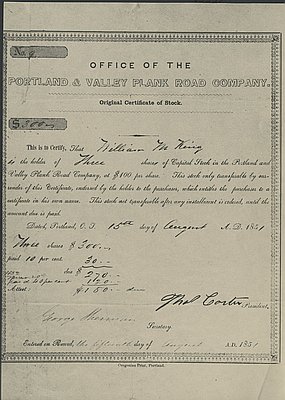 No. 9
OFFICE OF THE
PORTLAND & VALLEY PLANK ROAD COMPANY.
Original Certificate of Stock.
$300
This is to Certify, That William M King
is the holder of Three shares of Capital Stock in the Portland and
Valley Plank Road Company, at $100 per share. This stock only transferable by sur-
render of this Certificate, endorsed by the holder to the purchaser, which entitles the purchaser to a
certificate in his own name. This stock not transferable after any installment is called, until the
amount due is paid.
Dated, Portland, O. T. 15th day of August A. D. 1851
Three shares $300
paid 10 per cent 30
due $270
paid 40 per cent 120
$150 due
President,
George
Secretary.
Entered in Record, the fifteenth day of August A.D. 1851
Oregonian Print, Portland.